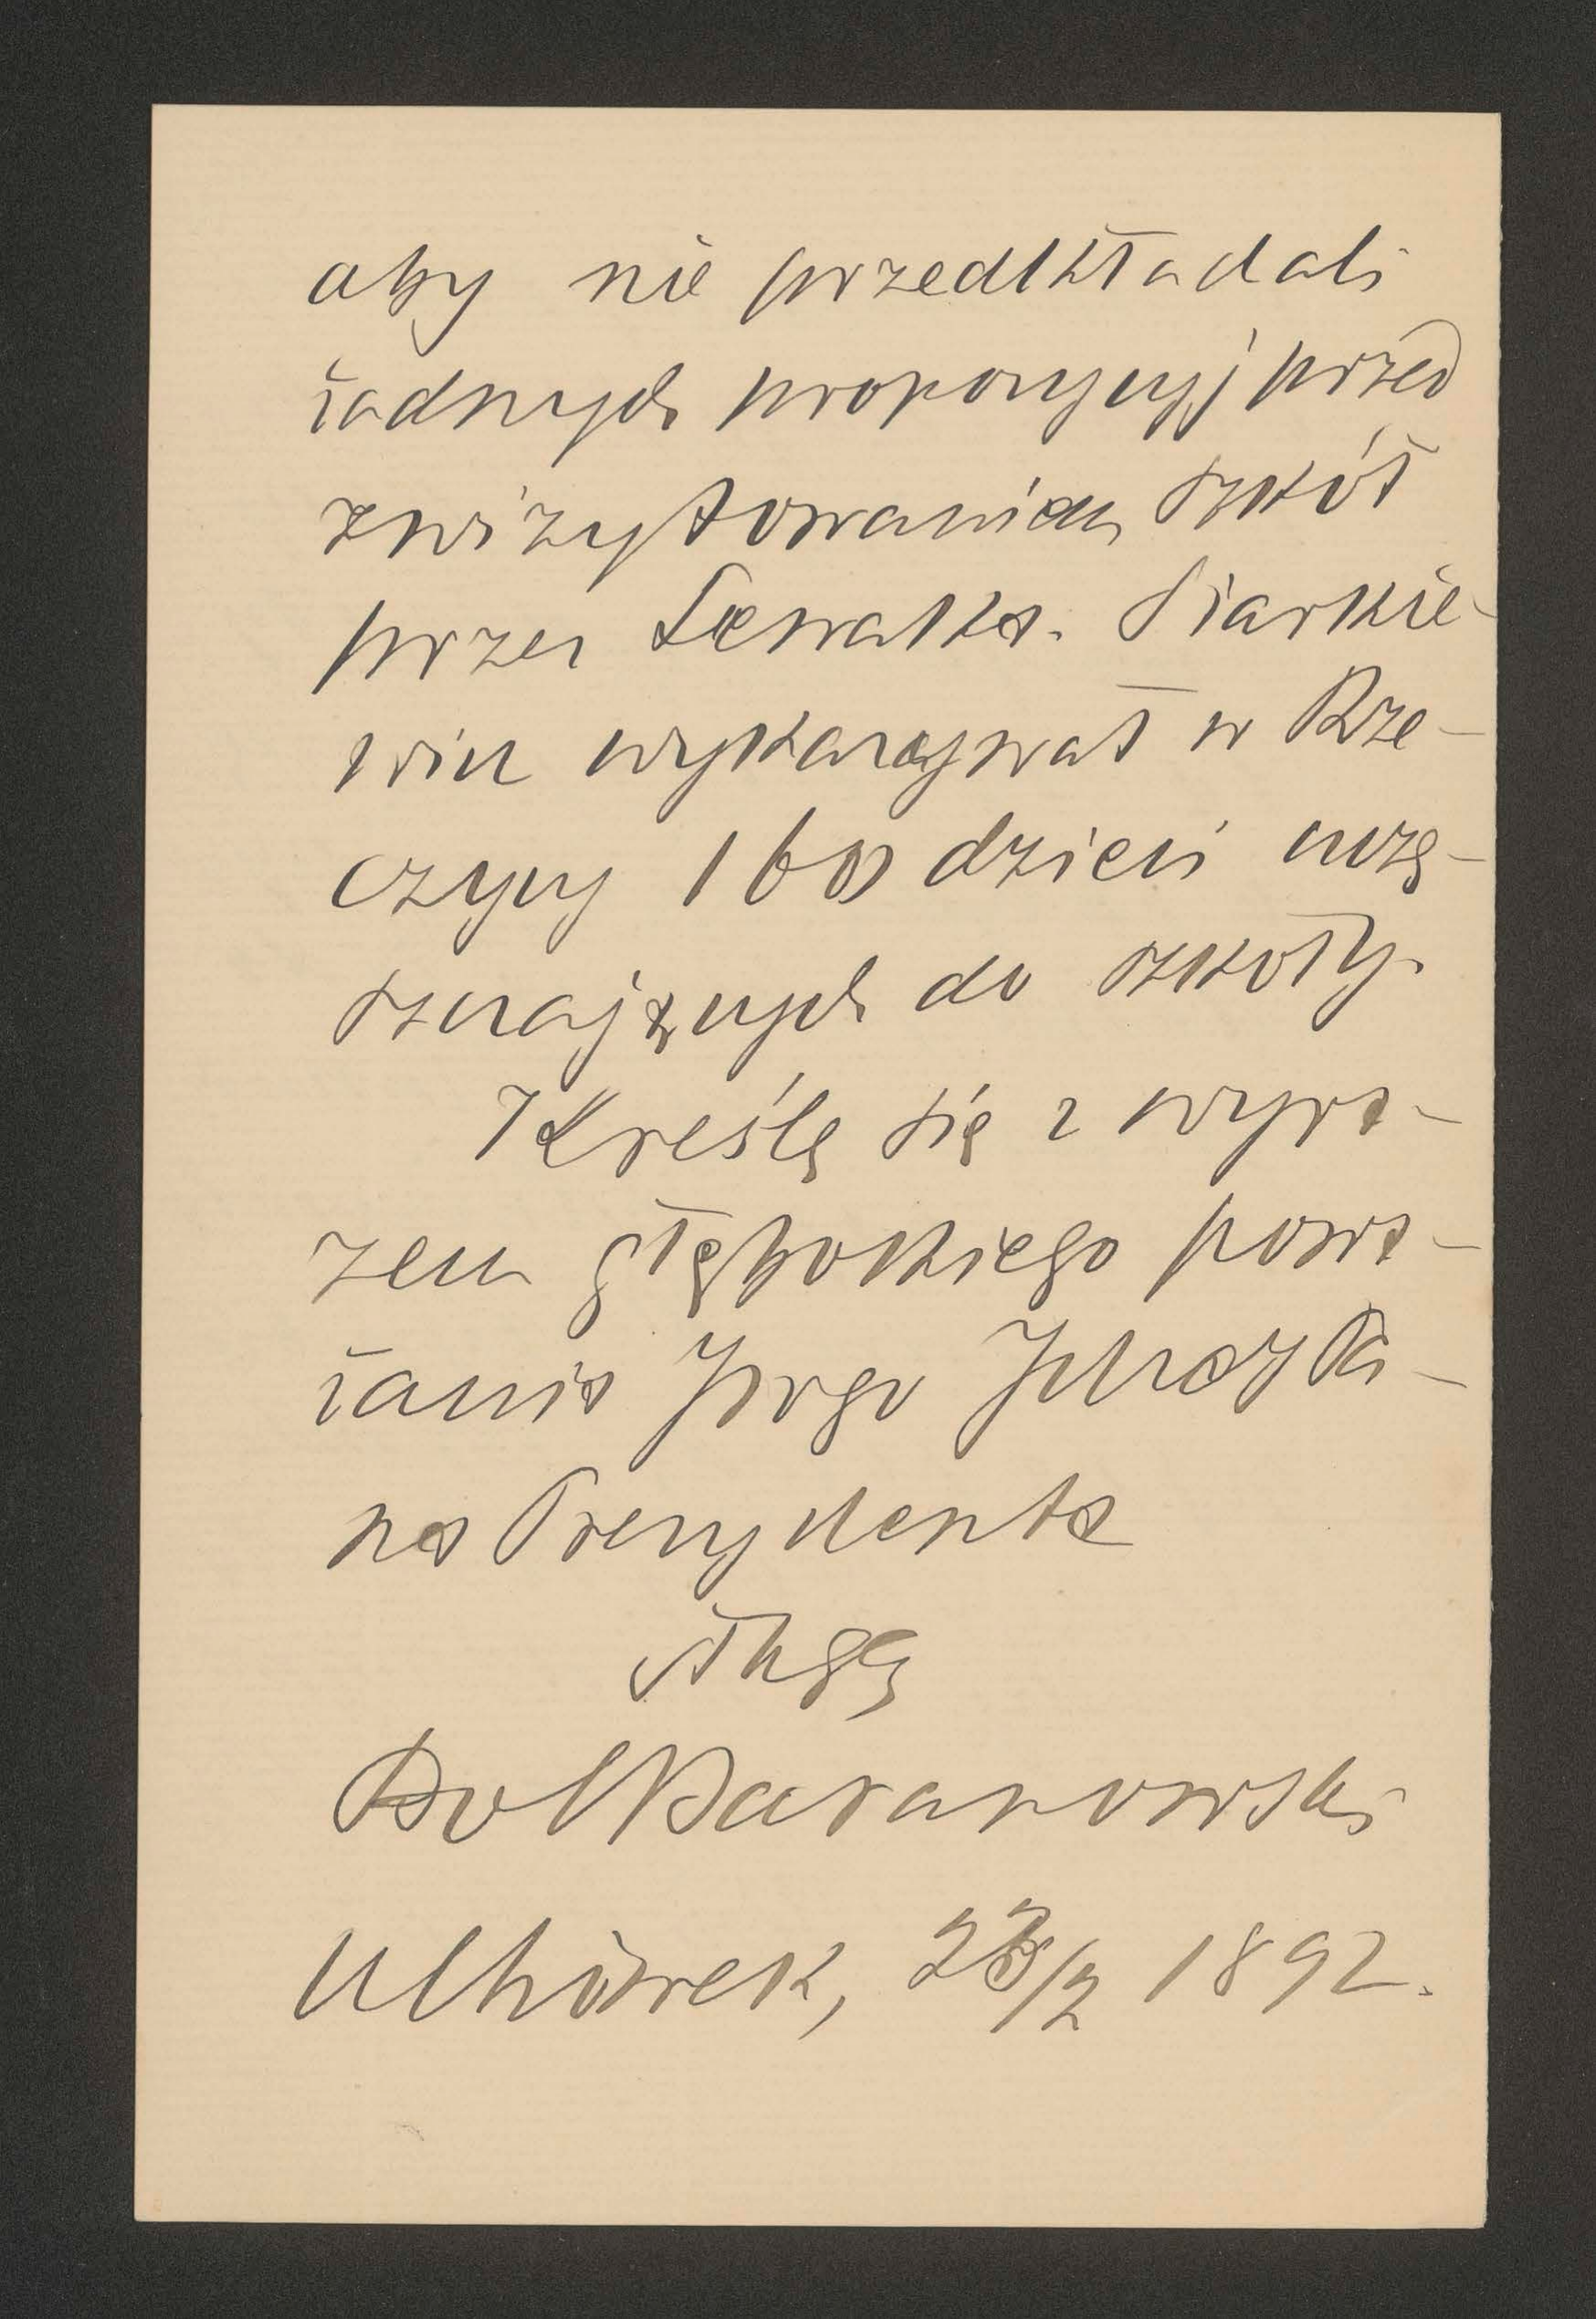 aby nie przedkładali
żadnych propozycyj przed
zwizytowaniem szkół
przez Lewalka. Siarkie-
wicz wykazywał w Rze-
czycy 160 dzieci uczę-
szczających do szkoły.
Kreślę się z wyra-
zem głębokiego powa-
żania JWgo
na Prezydenta
sługą
Bol Baranowski
Uhrivek, 23/2 1892.